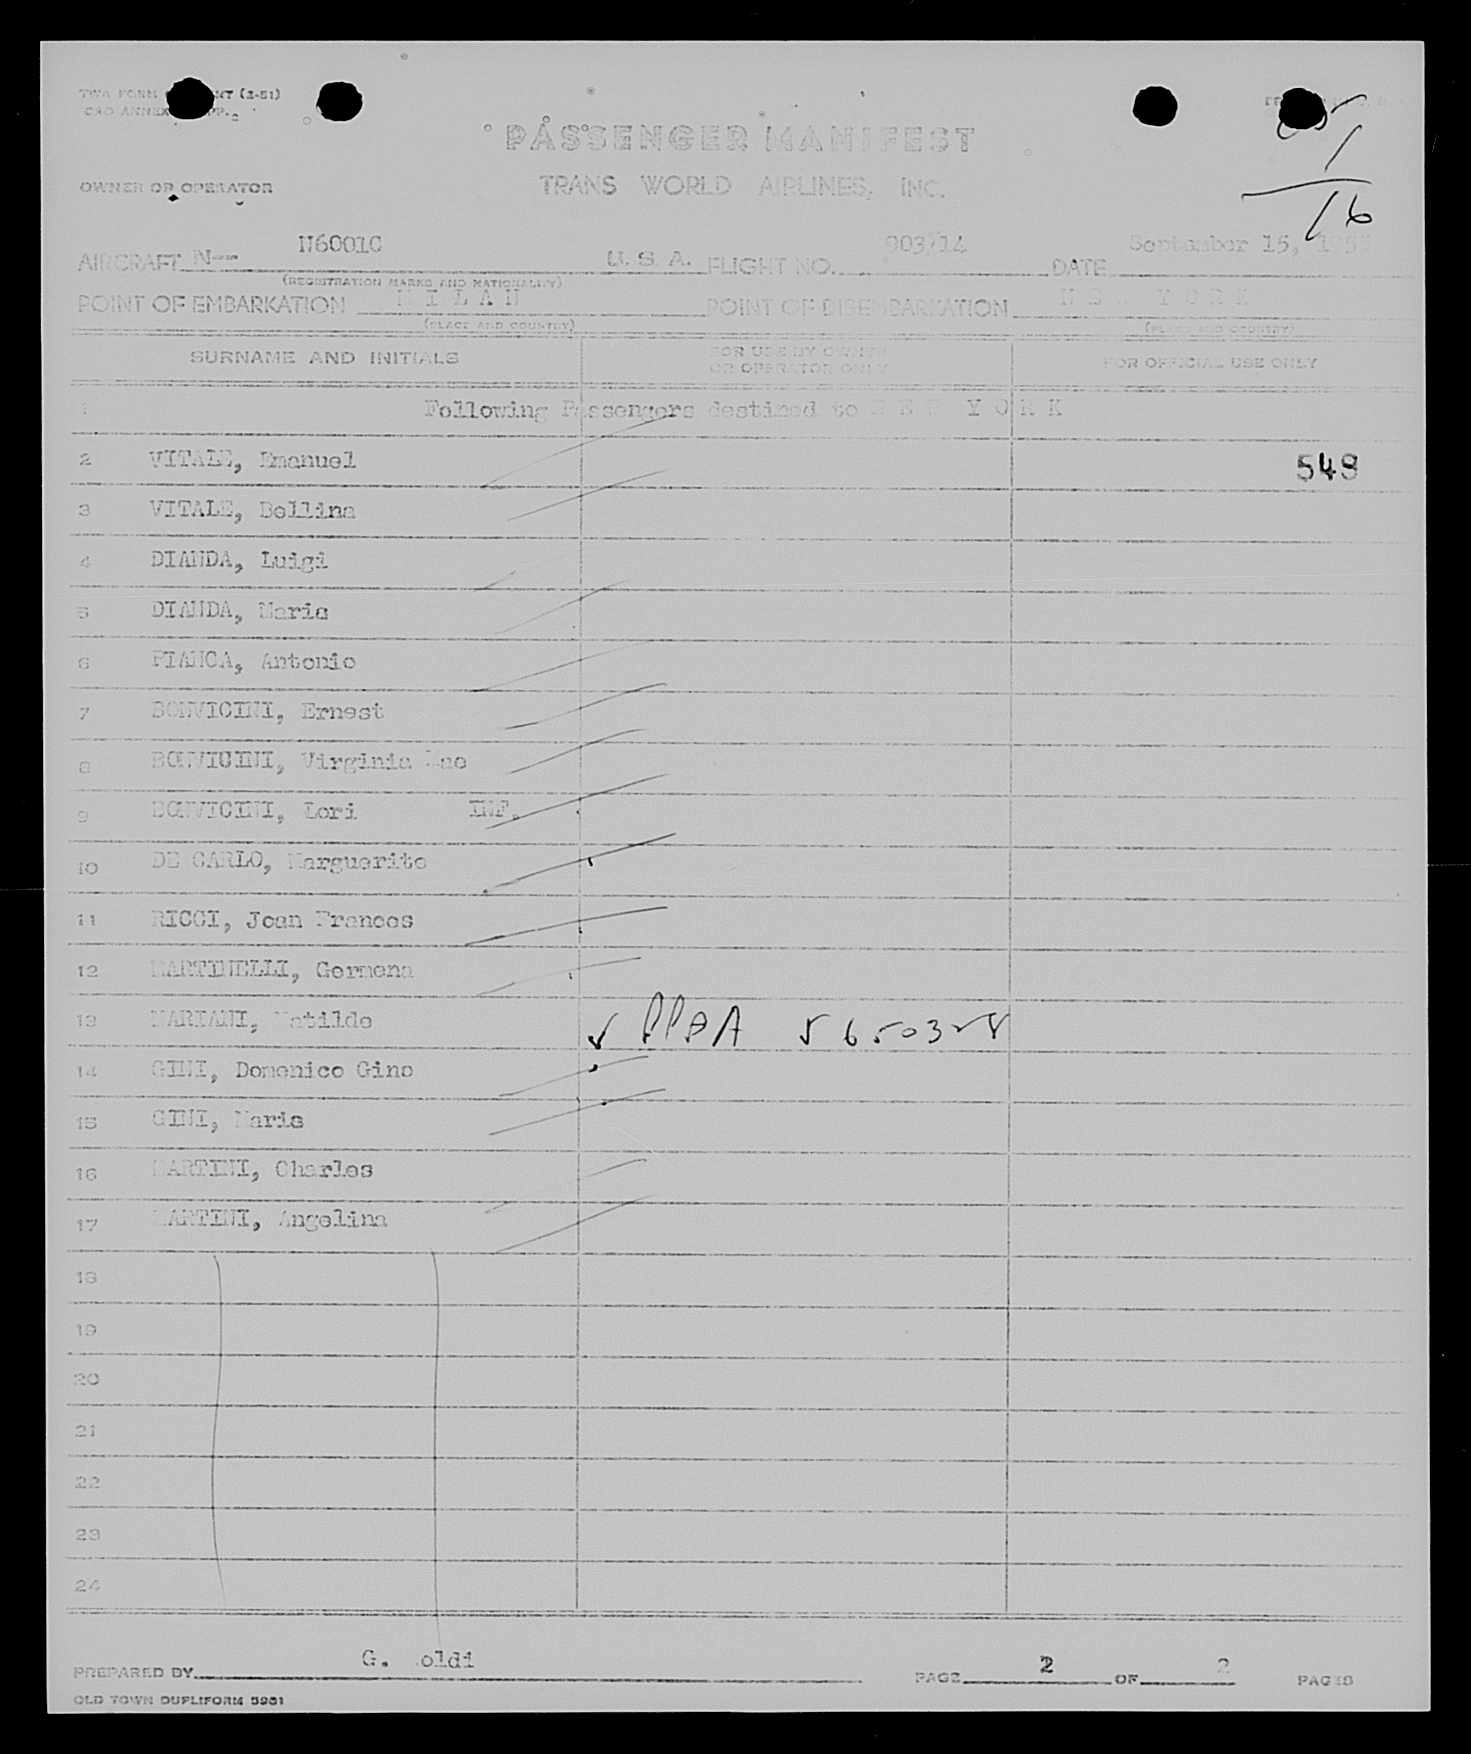 TWA FORM NT (2-51)
CAO ANNEX PP.
15
1
16
PASSENGER MANIFEST
OWNER OR OPERATOR TRANS WORLD AIRLINES, INC.
AIRCRAFT N-- N6001C U. S. A. FLIGHT NO. 903/14 DATE September 15,
(REGISTRATION MARKS AND NATIONALITY)
POINT OF EMBARKATION M I L A N POINT OF DISEMBARKATION N E W Y O R K
(PLACE AND COUNTRY) (PLACE AND COUNTRY)
SURNAME AND INITIALS FOR USE BY OWNER OR OPERATOR ONLY FOR OFFICIAL USE ONLY
1 Following Passengers destined to N E W Y O R K
2 VITALE, Emanuel 548
3 VITALE, Bellina
4 DIANDA, Luigi
5 DIANDA, Maria
6 PIANCA, Antonio
7 BONVICINI, Ernest
8 BONVICINI, Virginia Mae
9 BONVICINI, Lori INF.
10 DE CARLO, Marguerite
11 RICCI, Joan Frances
12 MARTINELLI, Germana
13 MARIANI, Matilde
14 GINI, Domenico Gino
15 GINI, Maria
16 MARTINI, Charles
17 MARTINI, Angelina
18
19
20
21
22
23
24
PREPARED BY G. oldi PAGE 2 OF 2 PAGES
OLD TOWN DUPLIFORM 5981